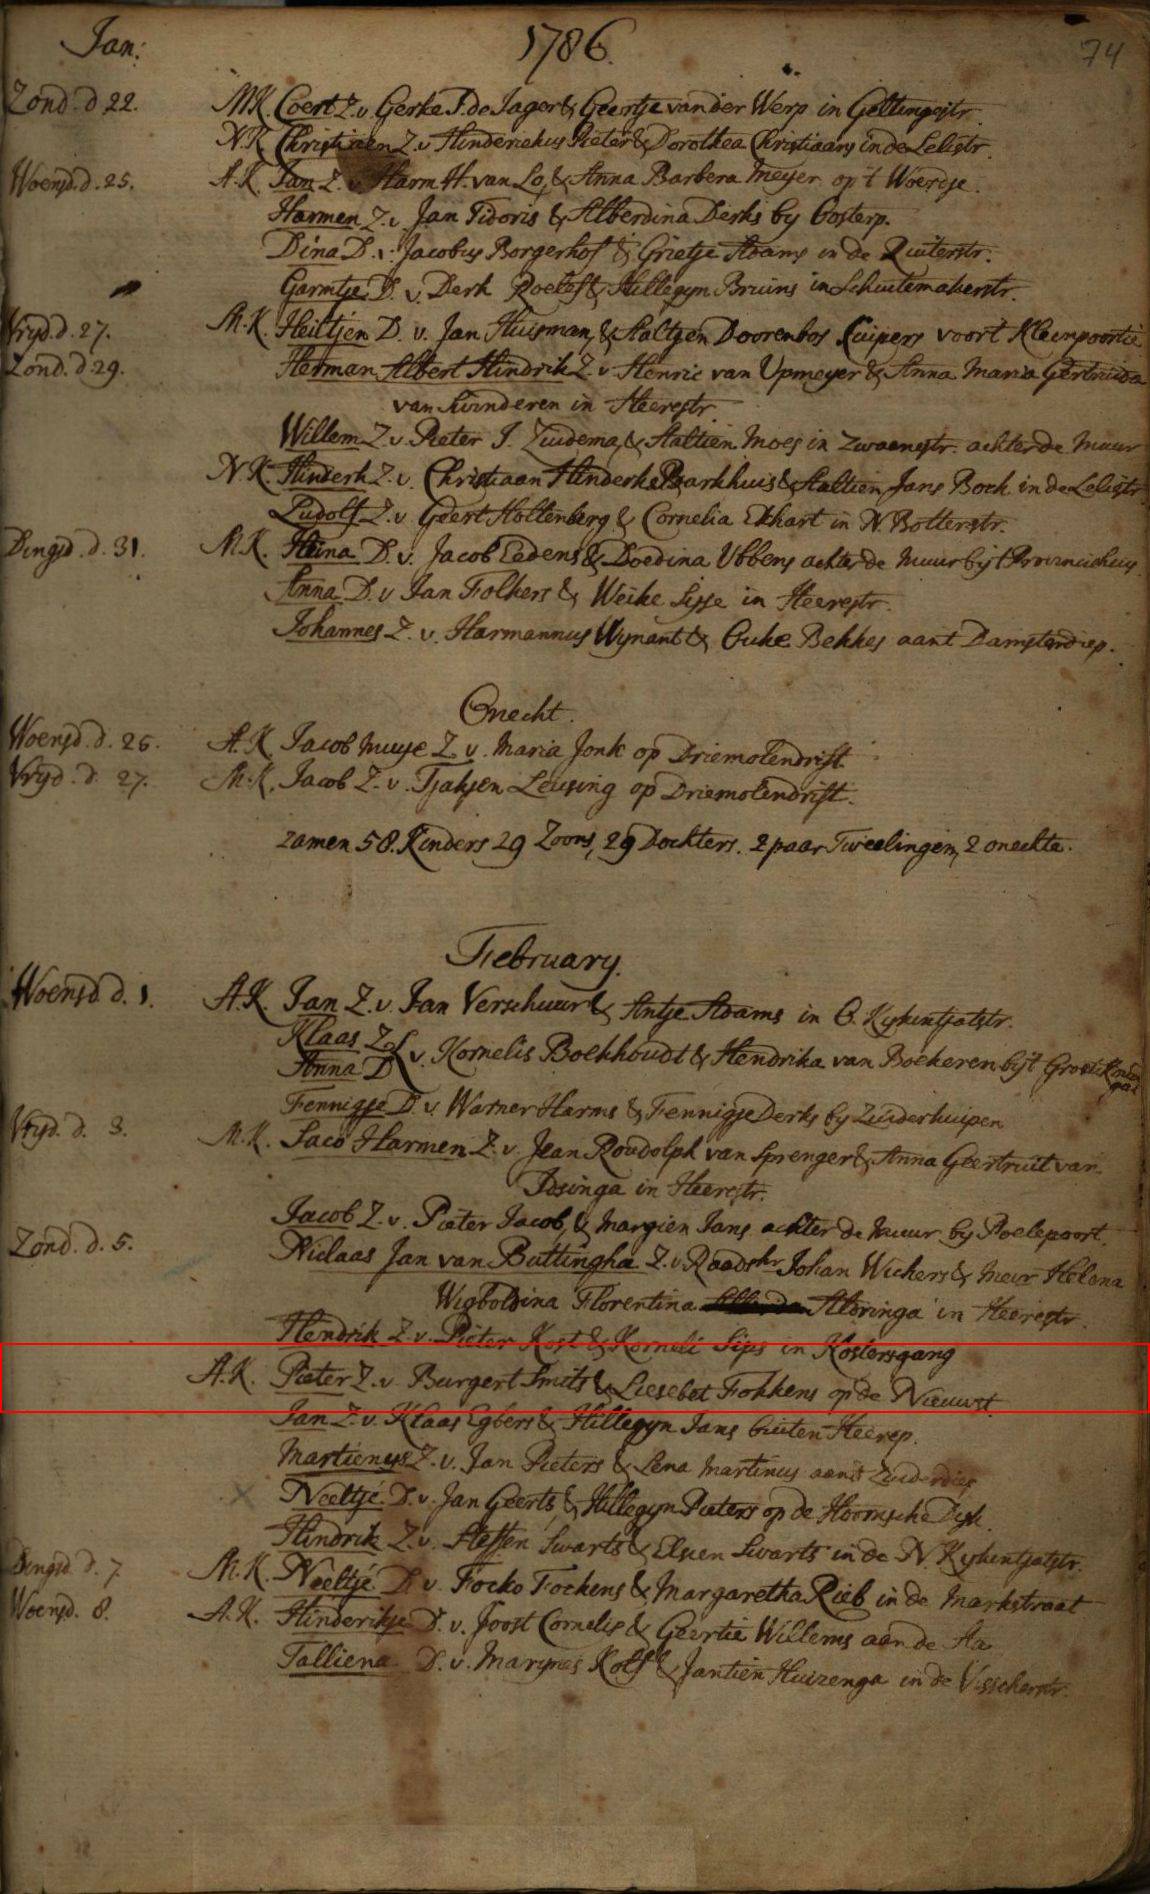 Jan: 1786. 74
Zond. d 22. M.K. Coert Z. v. Gerke T. de Jager & Geertje van der Werp in Geltingestr.
N.K. Christiaen Z. v. Hinderickus Pieter & Dorothea Christiaans in de Lelistr.
Woensd. d. 25. A.K. Jan Z. v. Harm H. van Lo, & Anna Barbera Meyer op 't Woerdje.
Harmen Z. v. Jan Tidoris & Alberdina Derks by Oosterp.
Dina D. v. Jacobus Borgerhof & Grietje Adams in de Ruiterstr.
Garmtje D. v. Derk Roelefs & Hillegyn Bruins in Schuitemakerstr.
Vryd. d. 27. M.K. Heiltjen D. v. Jan Huisman, & Aaltjen Doorenbos Kuipers voort Kleinpoortie
Zond. d 29. Herman Albert Hindrik Z. v. Henric van Upmeyer & Anna Maria Gertruida
van Swinderen in Heerestr.
Willem Z. v. Pieter J. Zuidema, & Aaltien Moes in Zwaenestr. achter de Muur
N.K. Hinderk Z. v. Christiaan Hinderk Barkhuis & Aaltien Jans Bock in de Lelistr
Ludolf Z. v. Geert Holtenberg & Cornelia Ekhart in N. Botterstr.
Dingsd. d. 31. M.K. Hina D. v. Jacob Eedens & Doedina Ubbens achter de Muur byt Provinciehuis
Anna D. v. Jan Folkers & Weike Sisse in Heerestr.
Johannes Z. v. Harmannus Wynant & Auke Bekkes aant Damsterdiep.
Onecht.
Woensd. d. 25. A.K. Jacob Muye Z. v. Maria Jonk op Driemolendrift.
Vryd. d. 27. M.K. Jacob Z. v. Tjaksen Leusing op Driemolendrift.
zamen 58. Kinders 29 Zoons, 29 Dochters. 2 paar Tweelingen, 2 onechte.
February.
Woensd. d. 1. A.K. Jan Z. v. Jan Verschuur & Antje Adams in O. Kykintjatstr.
Klaas Z.
Anna D. v. Kornelis Boekhoudt & Hendrika van Boekeren byt Groot
Fennigje D. v. Warner Harms & Fennigje Derks by Zuiderkuipen
Vryd. d. 3. M.K. Saco Harmen Z. v. Jean Roudolph van Sprenger & Anna Geertruit van
Idsinga in Heerestr.
Jacob Z. v. Pieter Jacob, & Margien Jans achter de Muur by Poelepoort.
Zond. d. 5. Niclaas Jan van Buttingha Z. v. Raadshr Johan Wichers & Mevr Helena
Wigboldina Florentina Aldringa in Heerestr.
Hendrik Z. v. Pieter Kost & Korneli Sips in Kostersgang
A.K. Pieter Z. v. Burgert Smits & Liesebet Fokkens op de Nieuwst.
Jan Z. v. Klaas Egbers & Hillegyn Jans buiten Heerep.
Martienus Z. v. Jan Pieters & Lena Martinus aant Zuiderdiep
Neeltje D. v. Jan Geerts & Hillegyn Pieters op de Hoornsche Dyk.
Hindrik Z. v. Steffen Swarts & Elsien Swarts in de N. Kykintjatstr.
Dingsd. d. 7 M.K. Neeltje D. v. Focko Fockens & Margaretha Rieb in de Markstraat
Woensd. 8. A.K. Hinderikje D. v. Joost Cornelis & Geertie Willems aan de Aa
Talliena D. v. Marynes Kolf & Jantien Huizenga in de Visscherstr.